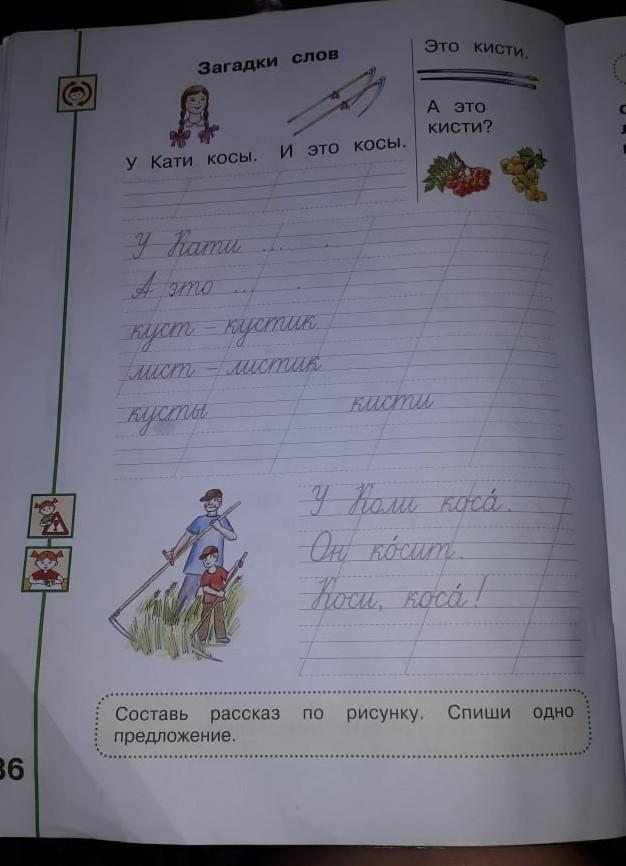 Загадки слов
У Кати косы. И это косы.
Это кисти.
А это
кисти?
У Кати ... .
А это ... .
куст – кустик
лист – листик
кусты кисти
У Коли коса́.
Он ко́сит.
Коси, коса́!
Составь рассказ по рисунку. Спиши одно
предложение.
36